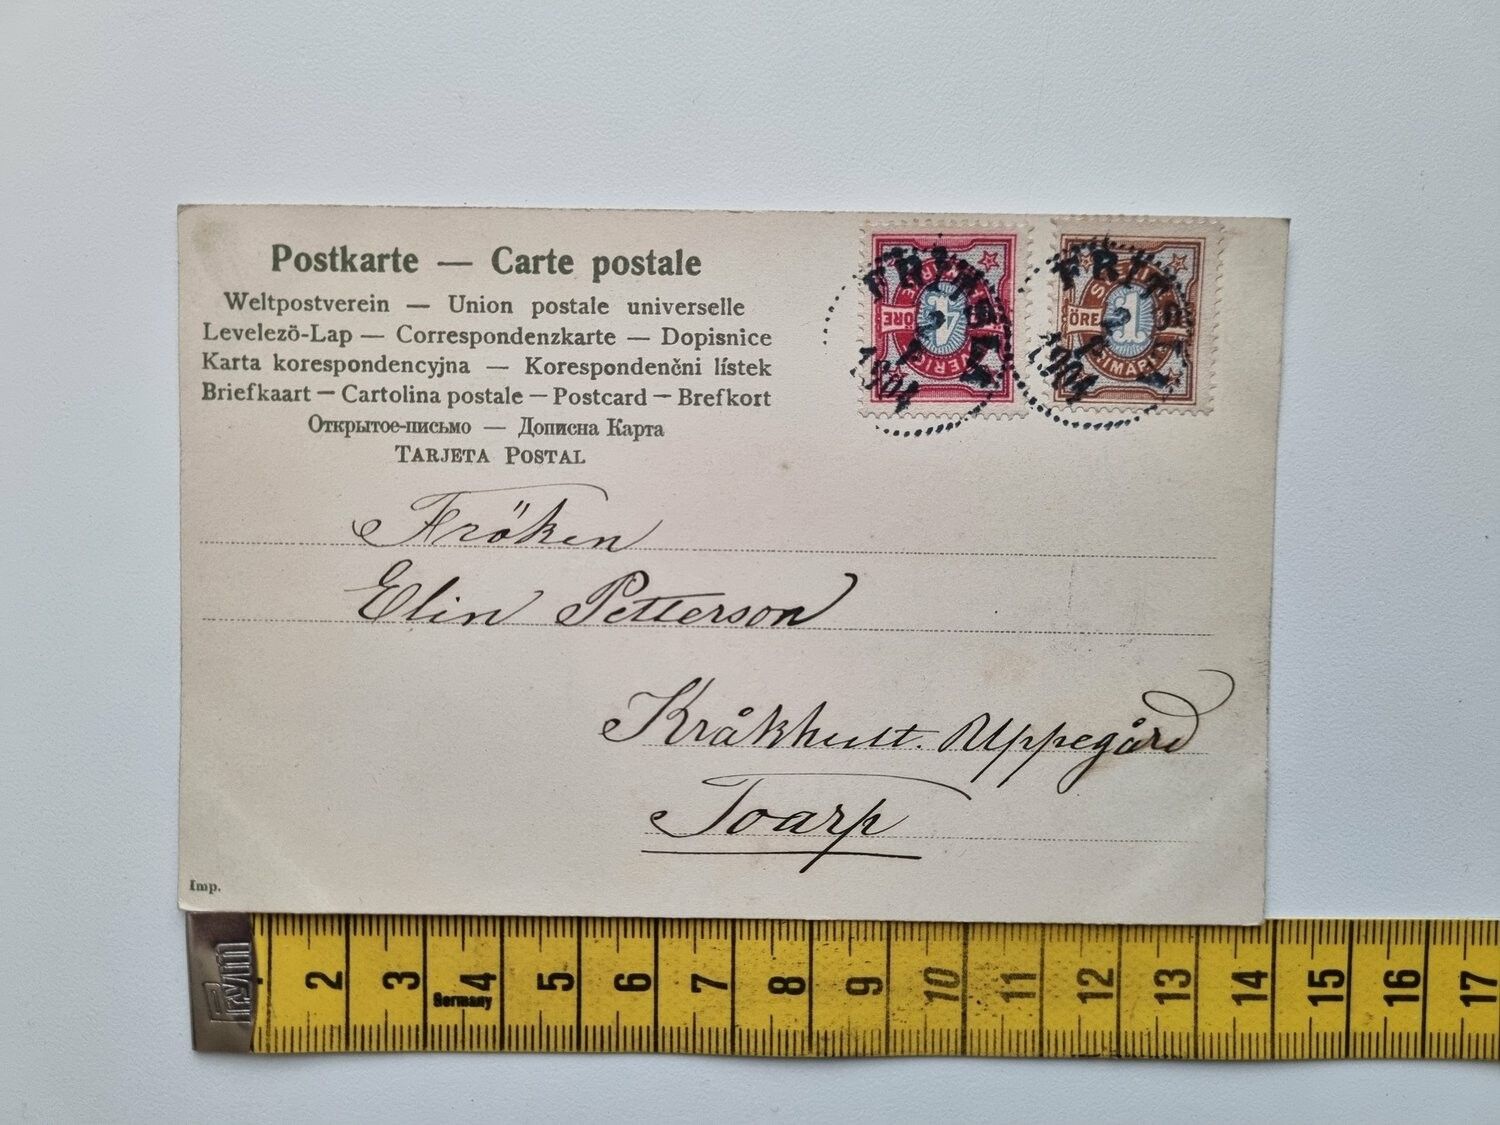 Postkarte — Carte postale
Weltpostverein — Union postale universelle
Levelezõ-Lap — Correspondenzkarte — Dopisnice
Karta korespondencyjna — Korespondenčni lístek
Briefkaart — Cartolina postale — Postcard — Brefkort
Открытое-письмо — Дописна Карта
TARJETA POSTAL
ÖRE 4 SVERIGE
ÖRE 1 FRIMÄRKE
1904
1904
Fröken
Elin Petterson
Kråkhult. Uppegård
Toarp
Imp.
Prym
2 3 4 5 6 7 8 9 10 11 12 13 14 15 16 17
Germany